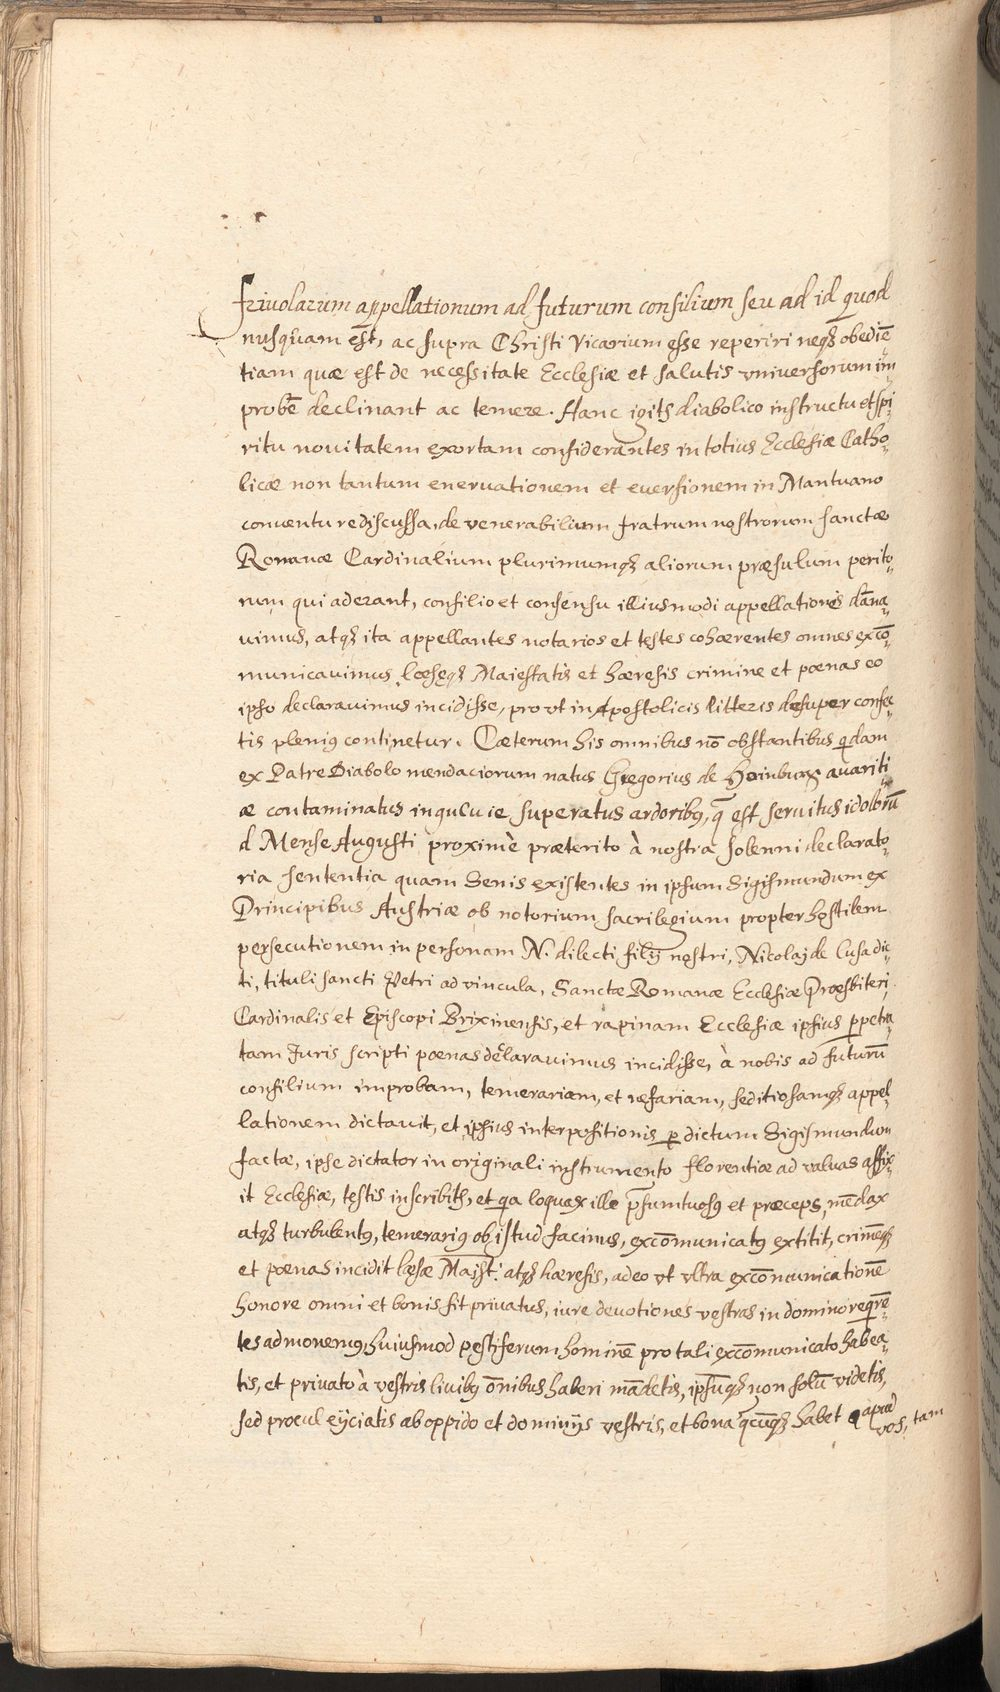 friuolarum appellationum ad futurum consilium seu ad id quod
nusquam est, ac supra Christi Vicarium esse reperiri neqꝫ obediē¬
tiam quæ est de necessitate Ecclesiæ et salutis vniuersorum im¬
probē declinant ac temere. Hanc igitꝫ diabolico instructu et spi¬
ritu nouitatem exortam considerantes in totius Ecclesiæ Catho¬
licæ non tantum eneruationem et euersionem in Mantuano
conuentu rediscussa, de venerabilium fratrum nostrorum sanctæ
Romanæ Cardinalium plurimumqꝫ aliorum præsulum perito¬
rum qui aderant, consilio et consensu illiusmodi appellationes dāna¬
uimus, atqꝫ ita appellantes notarios et testes cohærentes omnes excō¬
municauimus læseqꝫ Maiestatis et hæresis crimine et poenas eo
ipso declarauimus incidisse, pro vt in Apostolicis litteris desuper confec¬
tis plenius continetur. Cæterum his omnibus nō obstantibus qdam
ex Patre Diabolo mendaciorum natus Gregorius de Heinburg auariti¬
æ contaminatus inguluie superatus ardoribꝰ, q̄ est seruitus idolorū
d Mense Augusti proximè præterito à nostra solenni declarato¬
ria sententia quam Senis existentes in ipsum Sigismundum ex
Principibus Austriæ ob notorium sacrilegium propter hostilem
persecutionem in personam N. dilecti filij nostri, Nicolaj de Cusa dic¬
ti, tituli sancti Petri ad vincula, Sanctæ Romanæ Ecclesiæ Præsbiteri
Cardinalis et Episcopi Brixinensis, et rapinam Ecclesiæ ipsius ppetra
tam Juris scripti poenas declarauimus incidisse, à nobis ad futurū
consilium improbam, temerariam, et nefariam, seditiosamqꝫ appel¬
lationem dictauit, et ipsius interpositionis p dictum Sigismundum
factæ, ipse dictator in originali instrumento florentiæ ad valuas affix¬
it Ecclesiæ, testis inscribitꝫ, et qa loquax ille p̄sumtuosꝰ et præceps, mēdax
atqꝫ turbulentꝰ, temerariꝰ ob istud facinus, excōmunicatꝰ extitit, crimēqꝫ
et poenas incidit læsæ Maiest: atqꝫ hæresis, adeo vt vltra excōmunicationē
honore omni et bonis sit priuatus, iure deuotiones vestras in domino reqrē¬
tes admonemꝰ, huiusmod pestiferum hominē pro tali excōmunicato habea¬
tis, et priuato à vestris liuibꝰ ōnibus haberi mādetis, ipsūqꝫ non solū videtis,
sed procul eijciatis ab oppido et dominijs vestris, et bona qcūqꝫ habet apud
vos, tam